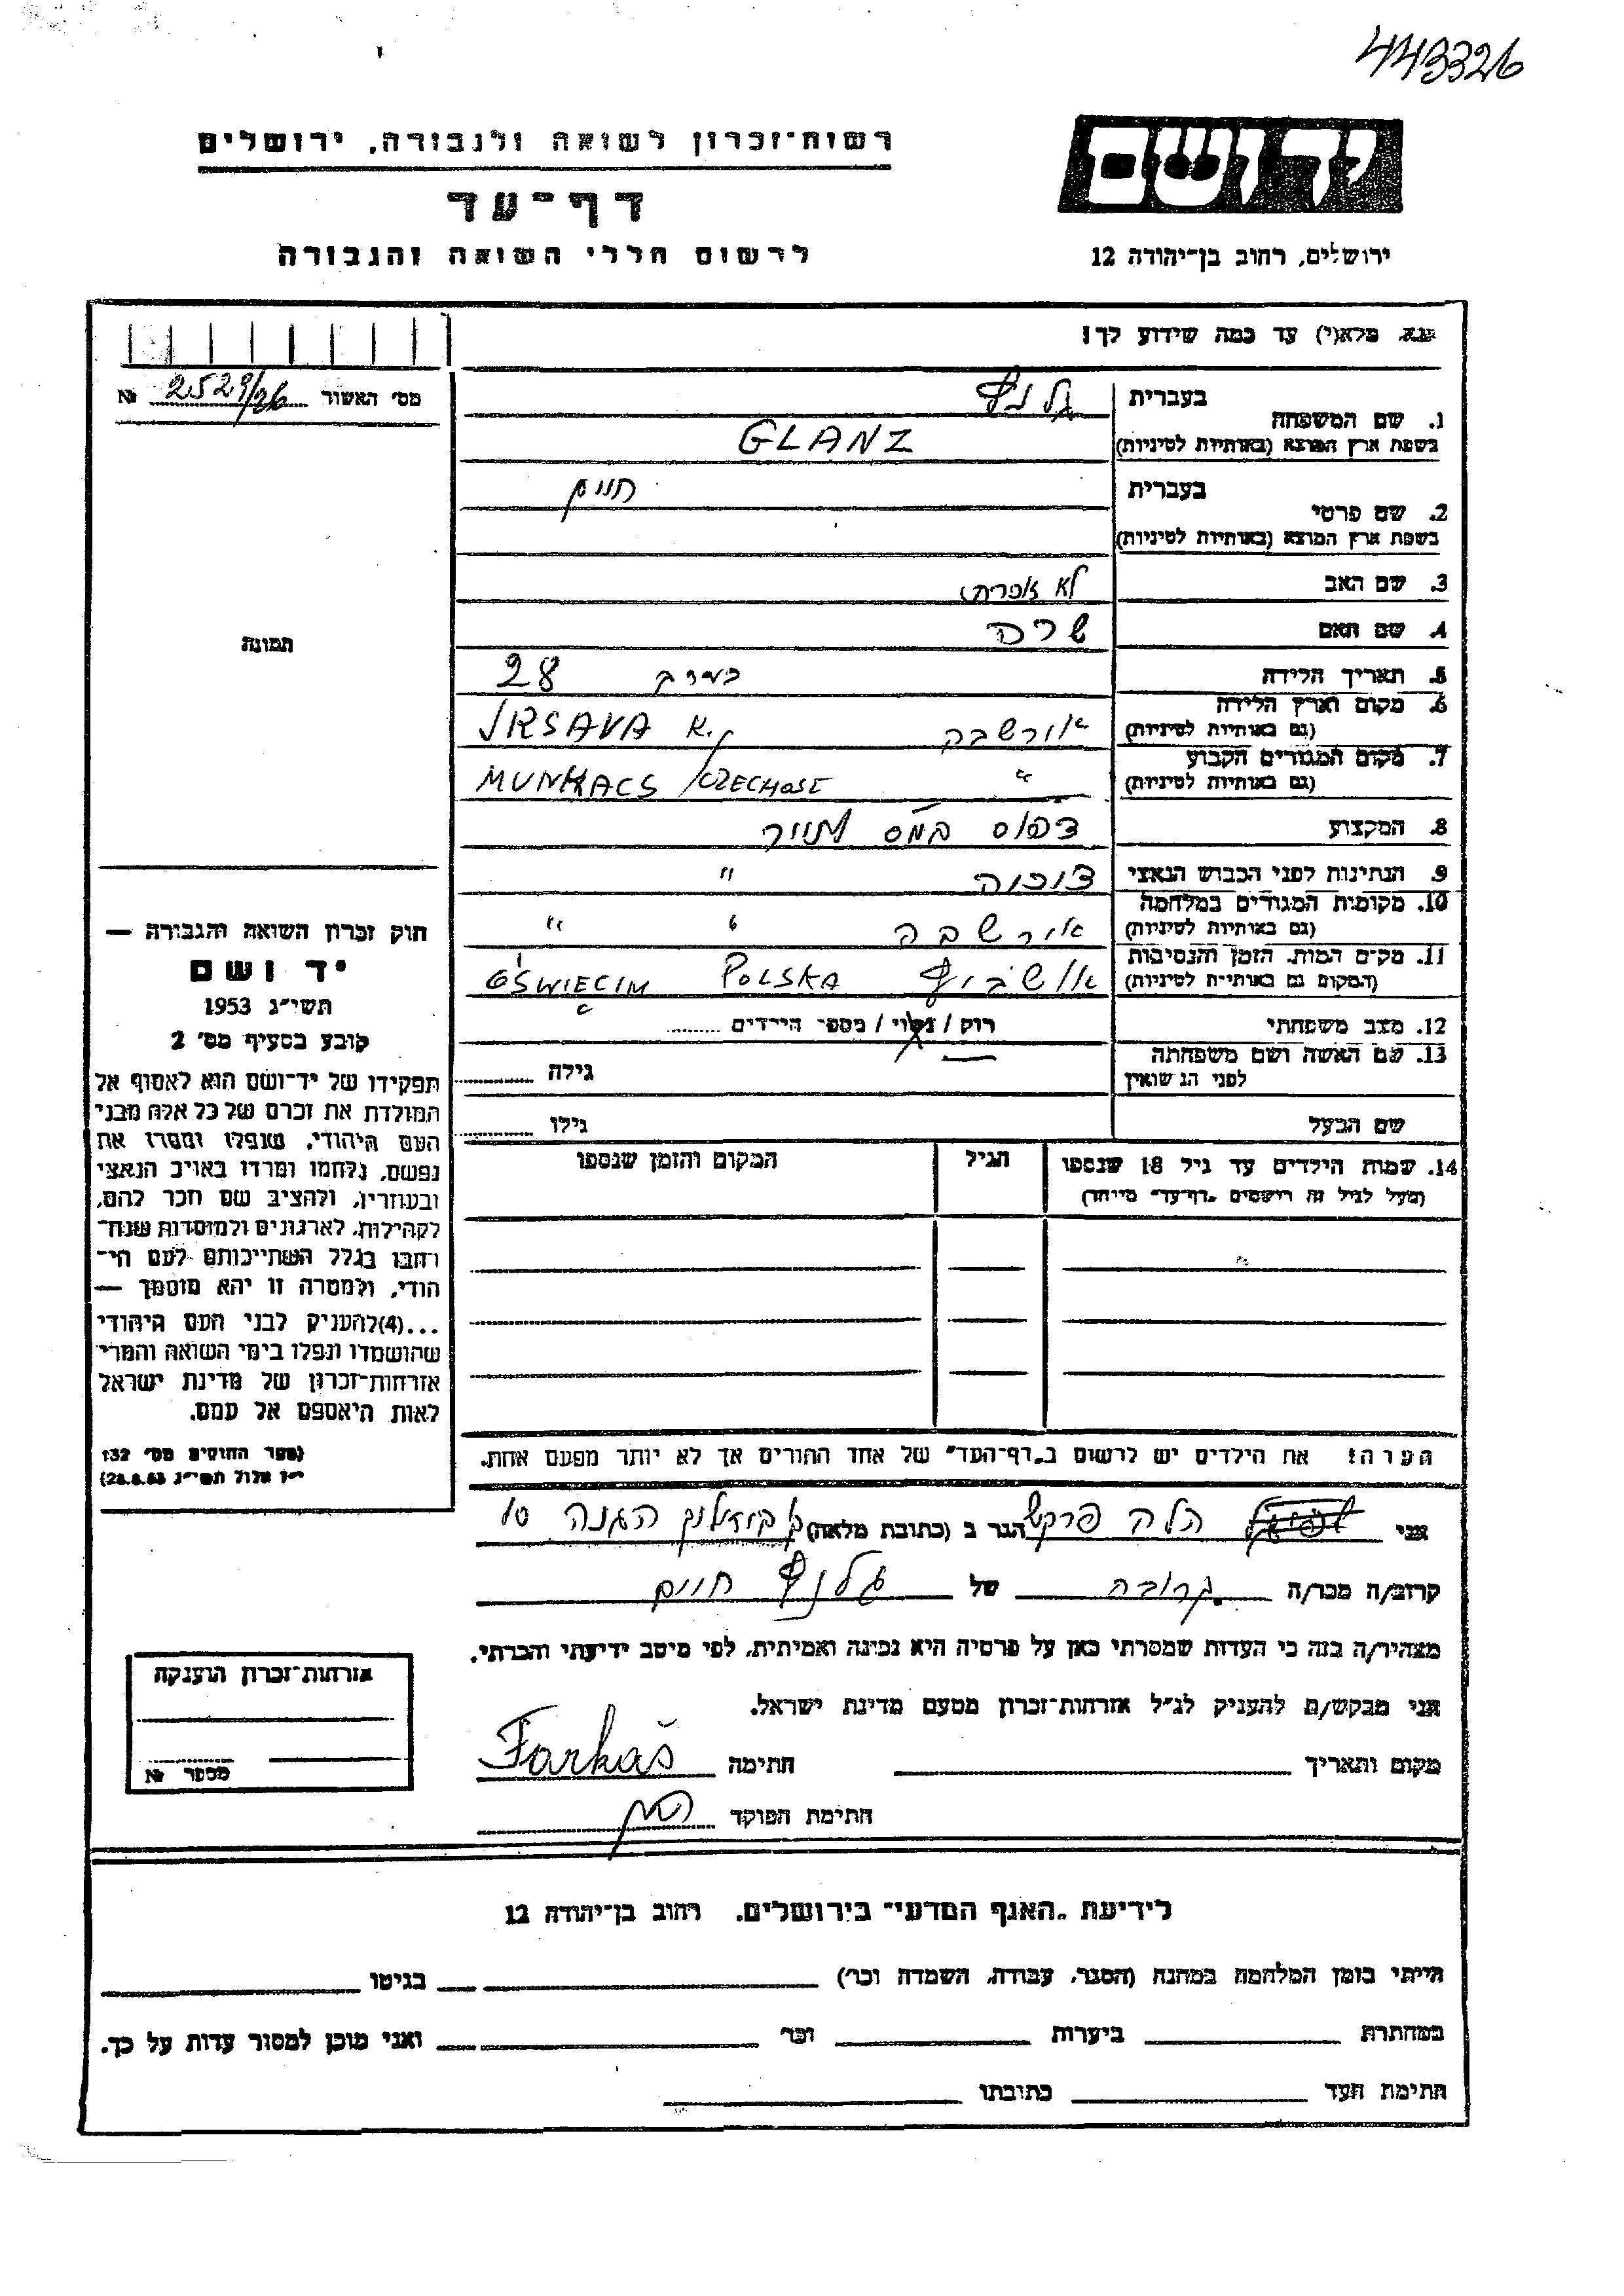 443326
רשות־זכרון לשואה ולגבורה, ירושלים
יד ושם
דף־עד
לרשום חללי השואה והגבורה
ירושלים, רחוב בן־יהודה 12
נא מלא(י) עד כמה שידוע לך!
מס׳ האשור 2529/26 №
1. שם המשפחה
בעברית גלנץ
בשפת ארץ המוצא (באותיות לטיניות) GLANZ
2. שם פרטי
בעברית חיים
בשפת ארץ המוצא (באותיות לטיניות)
3. שם האב לא
4. שם האם שרה
5. תאריך הלידה בערך 28
6. מקום וארץ הלידה
(גם באותיות לטיניות) אורשבה IRSAVA K.
7. מקום המגורים הקבוע
(גם באותיות לטיניות) " MUNKACS / CZECHOSL
8. המקצוע דפוס
9. הנתינות לפני הכבוש הנאצי "
10. מקומות המגורים במלחמה
(גם באותיות לטיניות) אורשבה " "
11. מקום המות, הזמן והנסיבות
(המקום גם באותיות לטיניות) אושביץ POLSKA OŚWIĘCIM
12. מצב משפחתי רווק / נשוי / מספר הילדים
13. שם האשה ושם משפחתה
לפני הנשואין — גילה
שם הבעל גילו
14. שמות הילדים עד גיל 18 שנספו הגיל המקום והזמן שנספו
(מעל לגיל זה רושמים „דף־עד" מיוחד)
תמונה
חוק זכרון השואה והגבורה —
יד ושם
תשי״ג 1953
קובע בסעיף מס׳ 2
תפקידו של יד־ושם הוא לאסוף אל
המולדת את זכרם של כל אלה מבני
העם היהודי, שנפלו ומסרו את
נפשם, נלחמו ומרדו באויב הנאצי
ובעוזריו, ולהציב שם וזכר להם,
לקהילות, לארגונים ולמוסדות שנח־
רבו בגלל השתייכותם לעם הי־
הודי, ולמטרה זו יהא מוסמך —
...(4)להעניק לבני העם היהודי
שהושמדו ונפלו בימי השואה והמרי
אזרחות־זכרון של מדינת ישראל
לאות היאספם אל עמם.
(ספר החוקים מס׳ 132
י״ז אלול תשי״ג 28.8.53)
הערה! את הילדים יש לרשום ב„דף־העד" של אחד ההורים אך לא יותר מפעם אחת.
אני הלה פרקש הגר ב (כתובת מלאה) הגנה 10
קרוב/ה מכר/ה קרובה של גלנץ חיים
מצהיר/ה בזה כי העדות שמסרתי כאן על פרטיה היא נכונה ואמיתית, לפי מיטב ידיעתי והכרתי.
אני מבקש/ת להעניק לנ״ל אזרחות־זכרון מטעם מדינת ישראל.
מקום ותאריך חתימה Farkaš
חתימת הפוקד
אזרחות־זכרון הוענקה
מספר №
לידיעת „האגף המדעי" בירושלים, רחוב בן־יהודה 12
הייתי בזמן המלחמה במחנה (הסגר, עבודה, השמדה וכו׳) בגיטו
במחתרת ביערות וכו׳ ואני מוכן למסור עדות על כך.
חתימת העד כתובתו